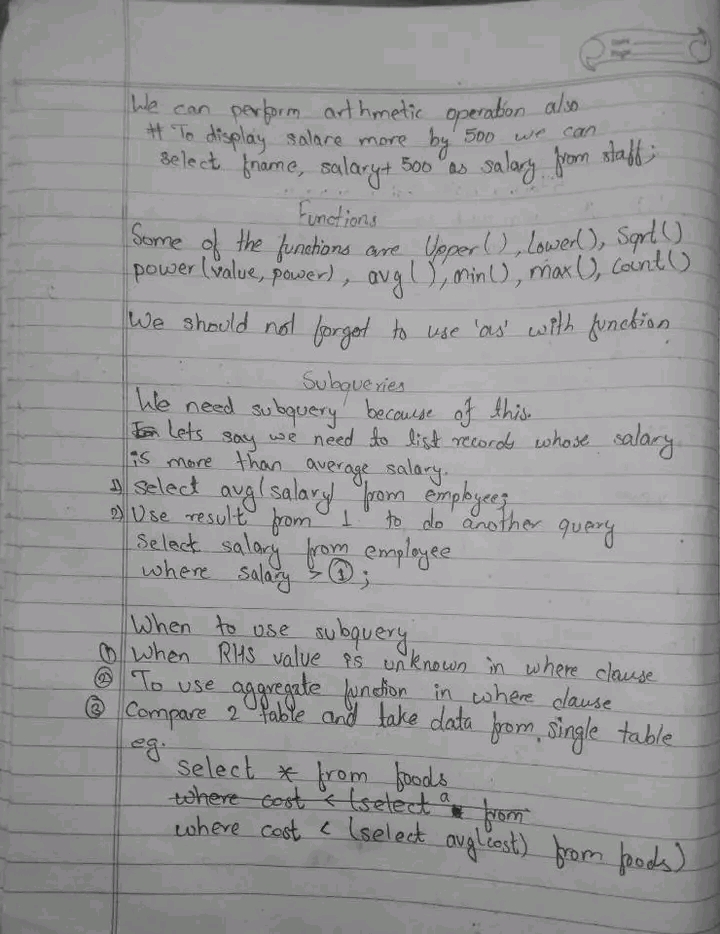 We can perform arthmetic operation also
# To display salare more by 500 we can
select fname, salary+ 500 as salary from staff;
Functions
Some of the functions are Upper(), Lower(), Sqrt()
power(value, power), avg(), min(), max(), Count()
We should not forgot to use 'as' with function
Subqueries
We need subquery because of this.
Lets say we need to list records whose salary
is more than average salary.
1) Select avg(salary) from employee;
2) Use result from 1 to do another query
Select salary from employee
where salary > ①;
When to use subquery
① When RHS value is unknown in where clause
② To use aggregate function in where clause
③ Compare 2 table and take data from single table
eg.
select * from foods
where cost < (select a from
where cost < (select avg(cost) from foods)